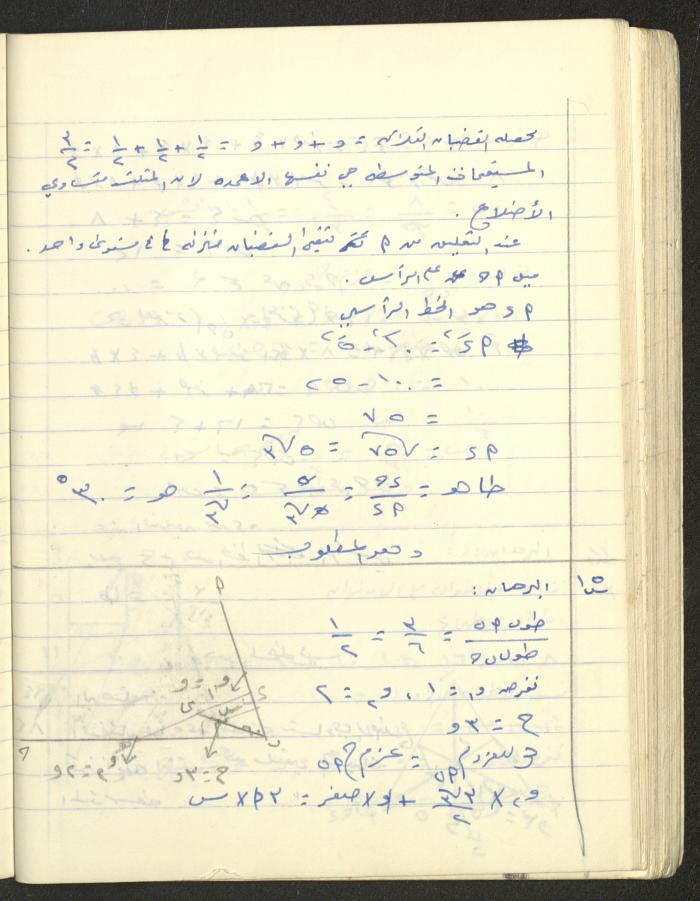 محصلة القضبان الثلاثة = و + و + و = ١/٢ + ١/٢ + ١/٢ = ٣/٢
المستقيمات المتوسطة هي نفسها الاعمدة لان المثلث متساوي
الأضلاع .
عند التعليق من م تبقى القضبان متزنة في مستوى واحد .
ميل م حـ على الرأسي .
م د هو الخط الرأسي
م د٢ = ١٠٢ - ٥٢
= ١٠٠ - ٢٥
= ٧٥
م د = √٧٥ = ٥√٣
ظا هـ = حـ د / م د = ٥ / ٥√٣ = ١ / √٣ هـ = ٣٠°
وهو المطلوب
س١٥ البرهان :
طول م ب / طول ب حـ = ٣/٦ = ١/٢
نفرض و١ = ١ ، و٢ = ٢
ح = ٣ و
عزم ح م ب
و٢ × ٣√٣/٢ + و١ × صفر = ٣ × س
م
و١ = و
د
س
ب
حـ
و٢ = ٢ و
ح = ٣ و